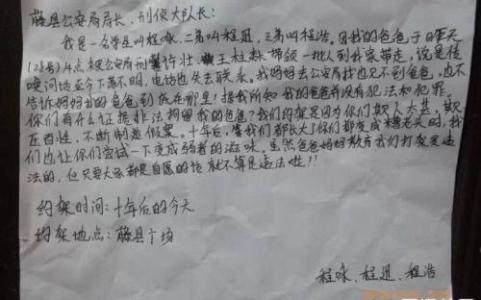 藤县公安局局长,刑侦大队长:
我是一名学生叫程咏,二弟叫程迅,三弟叫程浩。因我的爸爸于昨天
(23号)4点被公安局刑警许壮、王柱林带领一批人到我家带走,说是传
唤问话至今下落不明,电话也失去联系,我妈妈去公安局找也见不到爸爸,也不
告诉妈妈我的爸爸到底在哪里!据我所知我的爸爸并没有犯法和犯罪,
你们有什么证据非法拘留我的爸爸?我们约架是因为你们欺人太甚,欺
压百姓,不断制造假案,十年后,等我们都长大了你们都变成糟老头时,我
们也让你们尝试一下变成弱者的滋味,虽然爸爸妈妈教育我们打架是违
法的,但只要大家都是自愿的话就不算是违法啦!!
约架时间:十年后的今天
约架地点:藤县广场
程咏、程迅、程浩